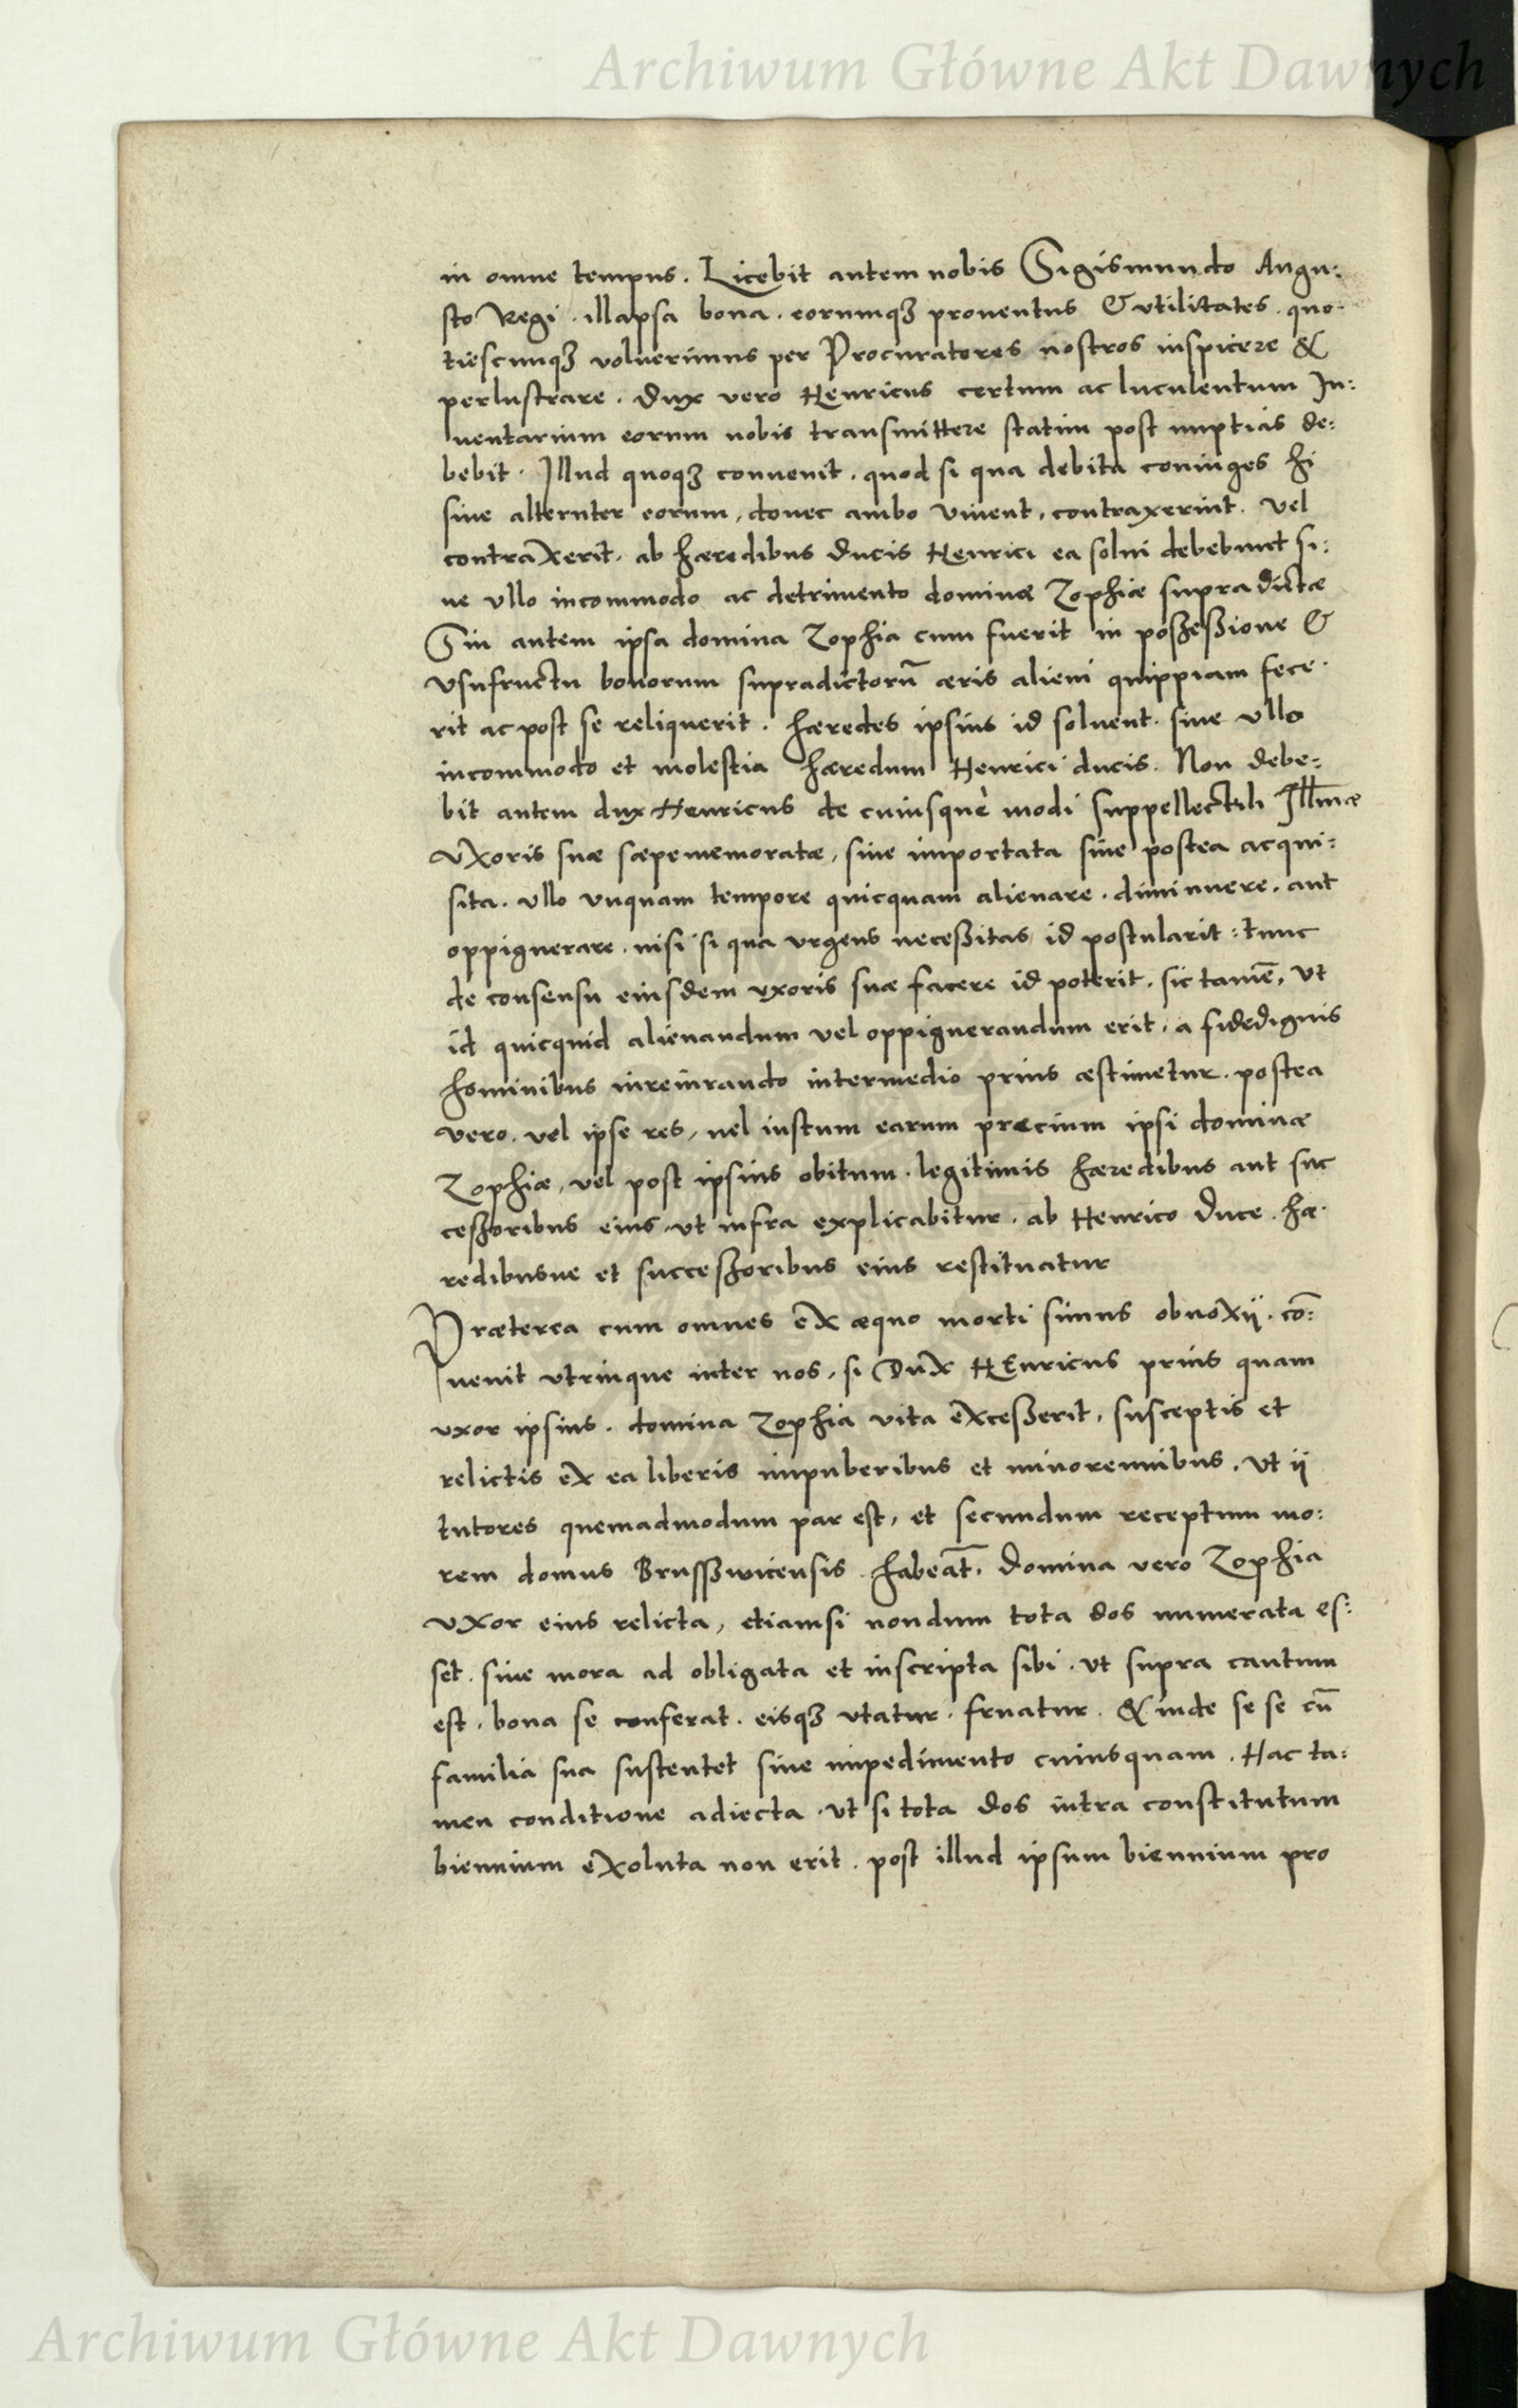 Archiwum Główne Akt Dawnych
in omne tempus. Licebit autem nobis Sigismundo Augu:
sto Regi. illapsa bona. eorumqȝ prouentus & vtilitates. quo-
tiescunqȝ voluerimus per Procuratores nostros inspicere &
perlustrare. Dux vero Henricus certum ac luculentum In:
uentarium eorum nobis transmittere statim post nuptias de:
bebit. Illud quoqȝ conuenit. quod si qua debita coniuges hi
siue alternter eorum, donec ambo viuent, contraxerint. vel
contraxerit. ab hæredibus Ducis Henrici ea solui debebunt si:
ne vllo incommodo ac detrimento dominæ Zophiæ supradictæ
Sin autem ipsa domina Zophia cum fuerit in possessione &
vsufructu bonorum supradictorū æris alieni quippiam fece.
rit ac post se reliquerit. hæredes ipsius id soluent. sine vllo
incommodo et molestia hæredum Henrici ducis. Non debe:
bit autem dux Henricus de cuiusque modi suppellectili Illmæ
vxoris suæ sæpememoratæ, siue importata siue postea acqui:
sita. vllo vnquam tempore quicquam alienare. diminuere. aut
oppignerare. nisi si qua vrgens necessitas id postularit: tunc
de consensu eiusdem vxoris suæ facere id poterit. sic tamē, vt
id quicquid alienandum vel oppignerandum erit, a fidedignis
hominibus iureiurando intermedio prius æstimetur. postea
vero. vel ipse res, uel iustum earum precium ipsi dominæ
Zophiæ, vel post ipsius obitum. legitimis hæredibus aut suc
cessoribus eius. vt infra explicabitur. ab Henrico Duce. hæ-
redibusue et successoribus eius restituatur
Præterea cum omnes ex æquo morti simus obnoxij. cō:
uenit vtrinque inter nos, si Dux Henricus prius quam
vxor ipsius. domina Zophia vita excesserit, susceptis et
relictis ex ea liberis impuberibus et minorennibus. vt ij
tutores quemadmodum par est, et secundum receptum mo:
rem domus Brusswicensis habeāt. Domina vero Zophia
vxor eius relicta, etiamsi nondum tota dos numerata es:
set. sine mora ad obligata et inscripta sibi. vt supra cautum
est. bona se conferat. eisqȝ vtatur. fruatur. & inde se se cū
familia sua sustentet sine impedimento cuiusquam. Hac ta:
men conditione adiecta. vt si tota dos intra constitutum
biennium exoluta non erit. post illud ipsum biennium pro
Archiwum Główne Akt Dawnych